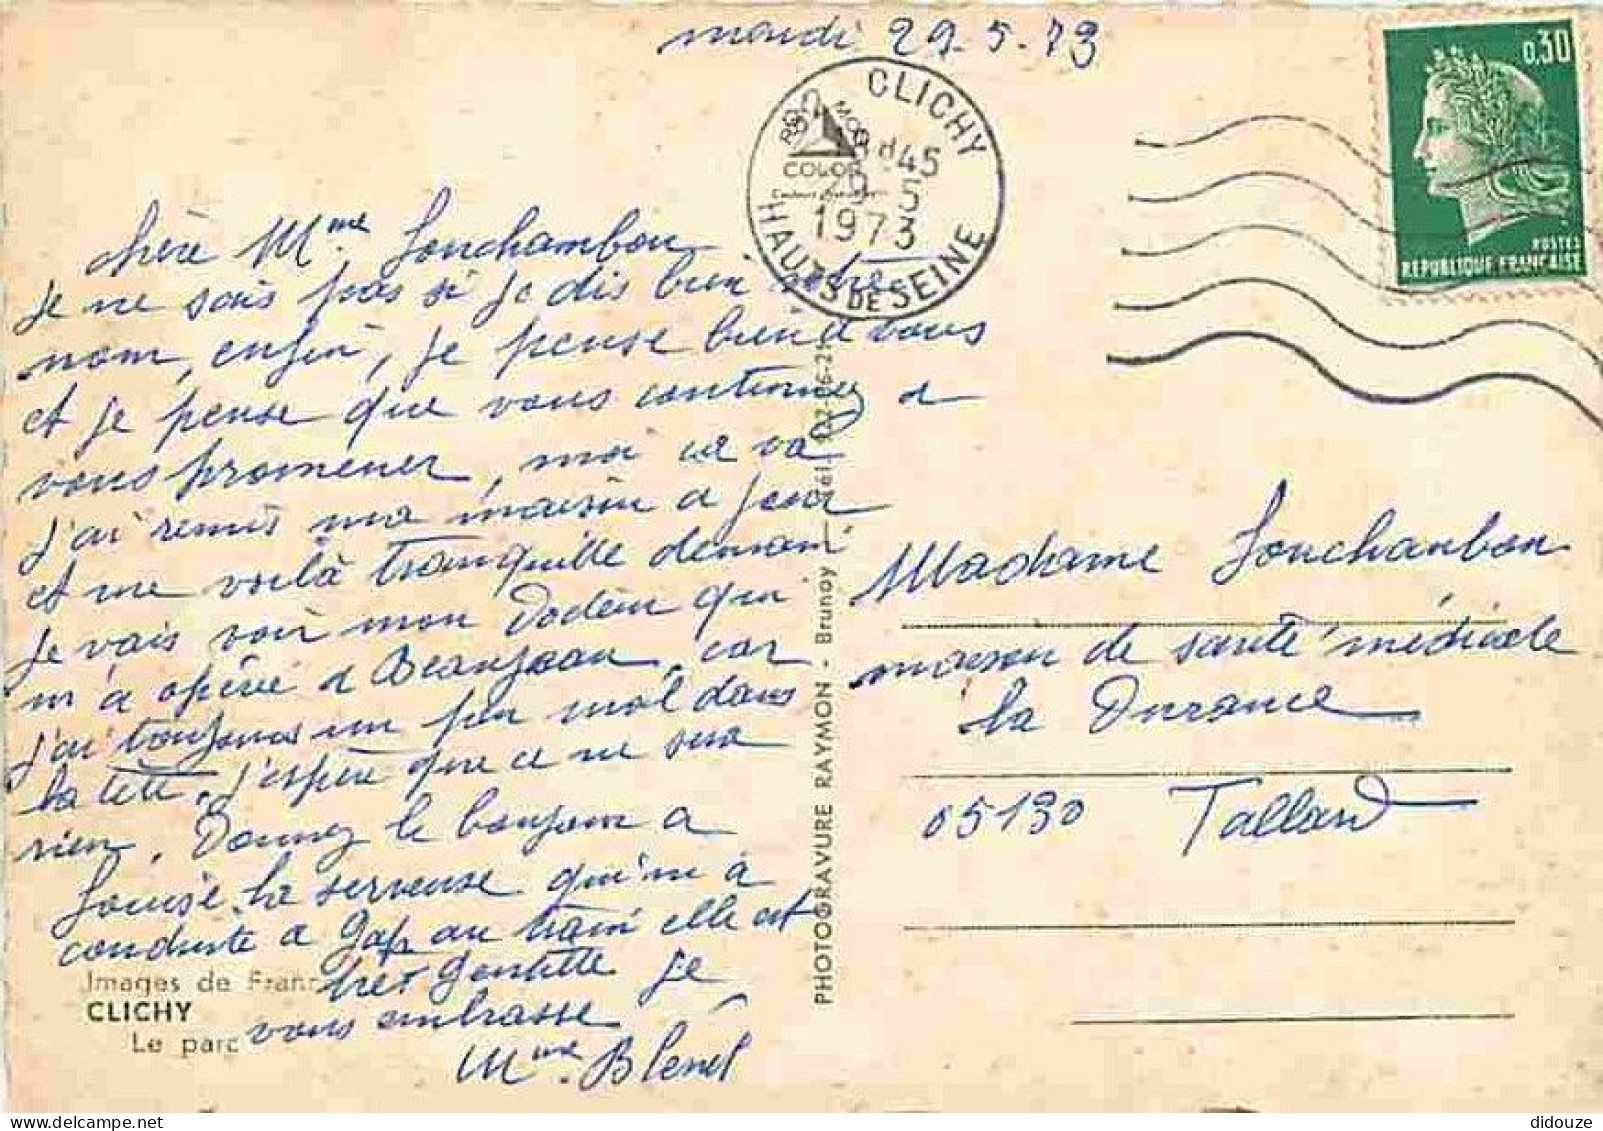 mardi 29-5-73
0,30
POSTES
REPUBLIQUE FRANÇAISE
CLICHY
45
5
1973
HAUTS DE SEINE
COLOR
chère Mme Louchambon
je ne sais pas si je dis bien votre
nom, enfin, je pense bien a vous
et je pense que vous continuez a
vous promener, moi ca va
j'ai remis ma maison a jour
et me voilà tranquille demain
je vais voir mon Docteur qui
m'a opéré a Beaujean, car
j'ai toujours un peu mal dans
la tête, j'espère que ce ne sera
rien. Donnez le bonjour a
Louise la serveuse qui m'a
conduite a Gap au train elle est
tres gentille je
vous embrasse
Mme Blenet
Madame Louchambon
maison de santé médicale
la Durance
05130 Tallard
PHOTOGRAVURE RAYMON - Brunoy - Tél.
Images de France
CLICHY
Le parc
didouze